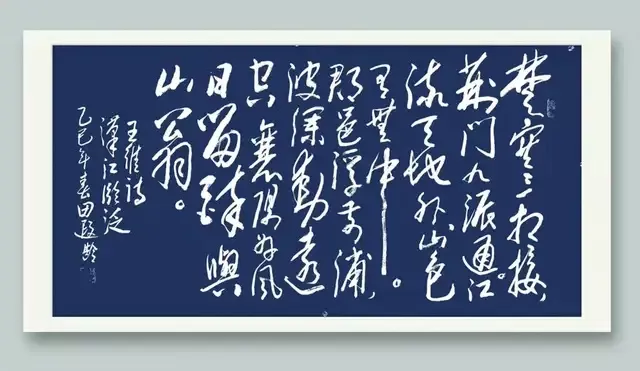 楚塞三湘接、
荆门九派通。江
流天地外、山色
有無中。
郡邑浮前浦、
波澜動遠
空襄陽好风
日留醉與
山翁。
王维诗
漢江临泛
乙巳年春田遐龄